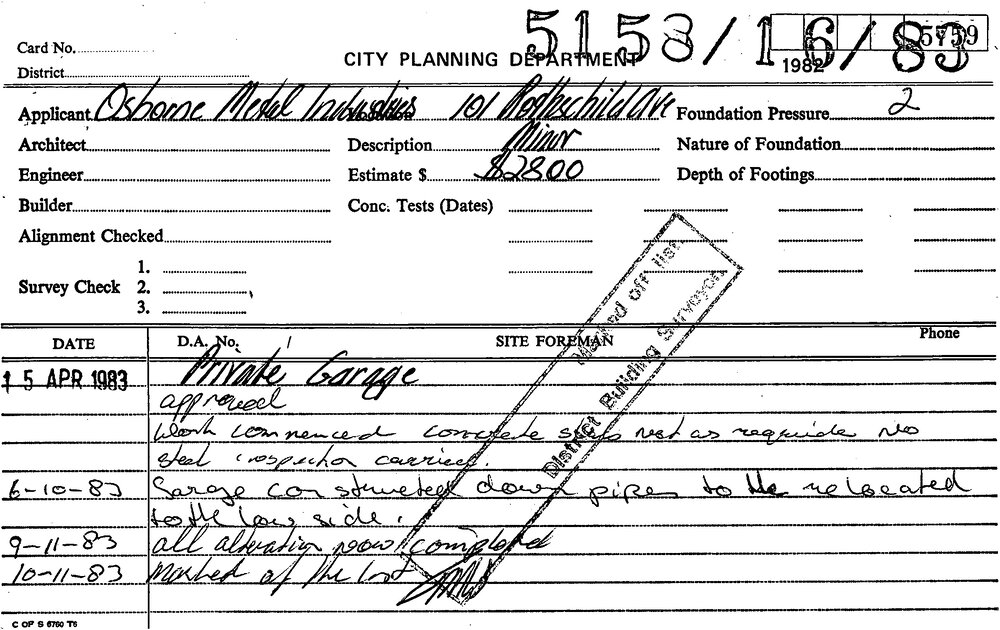 5153/16/83
5759
Card No.
CITY PLANNING DEPARTMENT
1982
District
Applicant Osborne Metal Industries 101 Rothschild Ave Foundation Pressure 2
Architect Description Minor Nature of Foundation
Engineer Estimate $ $2800 Depth of Footings
Builder Conc. Tests (Dates)
Alignment Checked
1.
Survey Check 2.
3.
DATE D.A. No. / SITE FOREMAN Phone
15 APR 1983 Private Garage
approved
Work commenced concrete as No
steel carried.
6-10-83 Garage constructed down pipes to the relocated
to the low side.
9-11-83 all alteration now completed
10-11-83 Marked of the list
Marked off list
District Building Surveyor
C OF S 6760 T6